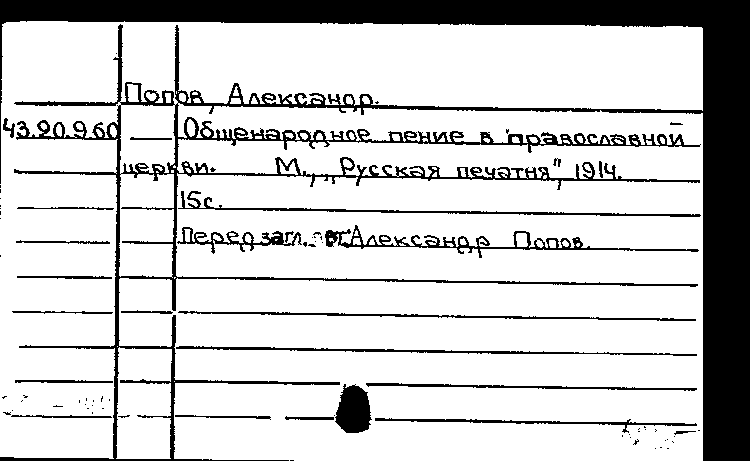 Попов, Александр.
43.20.9.60 Общенародное пение в православной
церкви. М., „Русская печатня", 1914.
15с.
Перед загл. авт. Александр Попов.